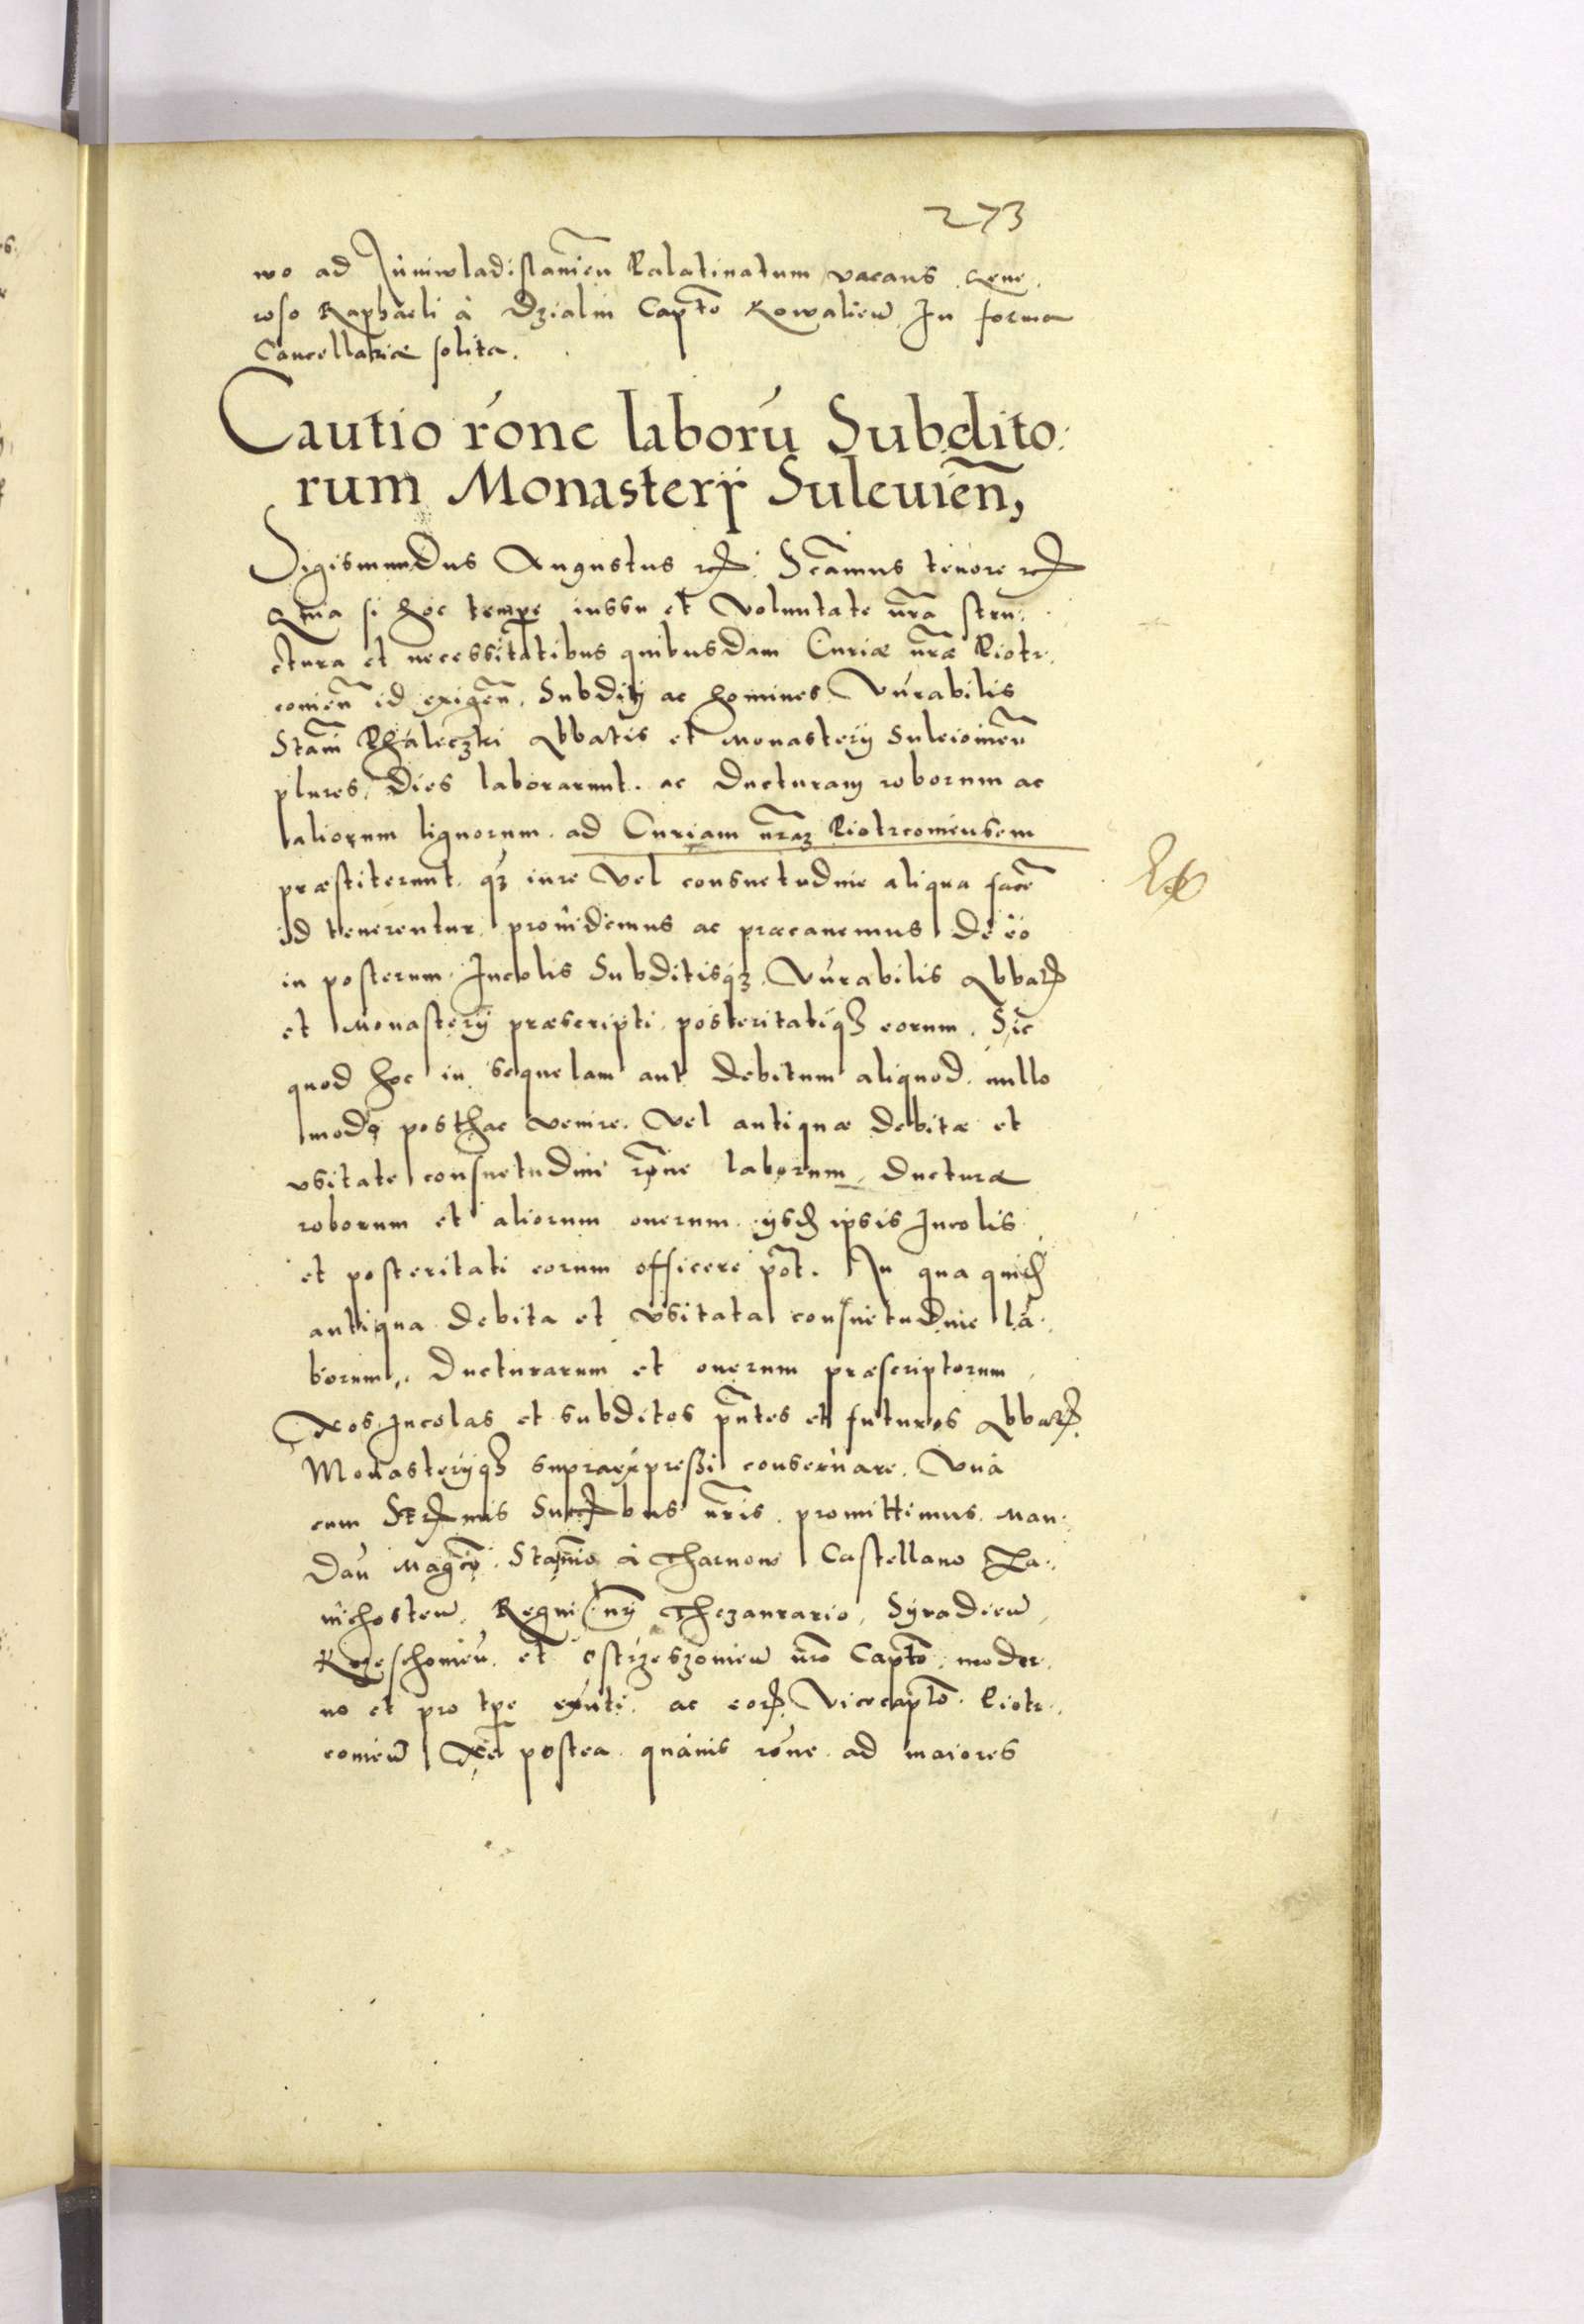 273
wo ad Juniwladislauien Palatinatum vacans. Gene-
roso Raphaeli à Dzialin Capto Kowalien In forma
Cancellariæ solita.
Cautio róne laború Subdito:
rum Monasterij Suleuieñ,
Sigismundus Augustus rex: Scamus tenore
Quia si hoc tempe iussu et voluntate nra stru:
ctura et necessitatibus quibusdam Curiæ nræ Piotr.
couien id exigen. Subditi ac homines Vnrabilis
Stani Phaleczki Abbatis et Monasterij Suleiouien
plures dies laborarunt. ac ducturam roborum ac
aliorum lignorum. ad Curiam nraz Piotrcouiensem
præstiterunt. qz iure vel consuetudine aliqua
id tenerentur. prouidemus ac præcauemus de eo
in posterum. Incolis Subditisqz. Vnrabilis Abbatis
et Monasterij præscripti posteritatiqz eorum. Sic
quod hoc in sequelam aut debitum aliquod. nullo
modo posthac venire. vel antiquæ debitæ et
vsitate consuetudini rone laborum, ducturæ
roborum et aliorum onerum. ijsd ipsis Incolis
et posteritati eorum officere pot. In qua quid
antiqua debita et vsitata consuetudine la.
borum,. ducturarum et onerum præscriptorum
Eos Incolas et subditos pntes et futuros Abbatis
Monasterijqz supraexpressi conseruare. Vna
cum Sermis Succbus nris. promittimus. Man.
dan Magco. Stanio à Tharnow Castellano Za.
uichosten. Regni nri Thezaurario, Syradien
Krzeschouien. et Ostrzeszouien nro Capto moder.
no et pro tpe exnti. ac eor Vicecapto. Piotr.
couien postea quauis rone. ad maiores